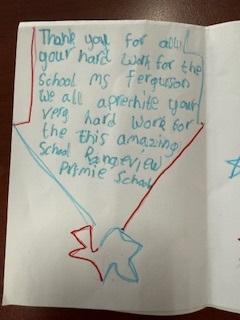 Thank you for all
your hard work for the
School ms ferguson
We all aprechite your
very hard work for
the this amazing
School Rangeview
Primie School